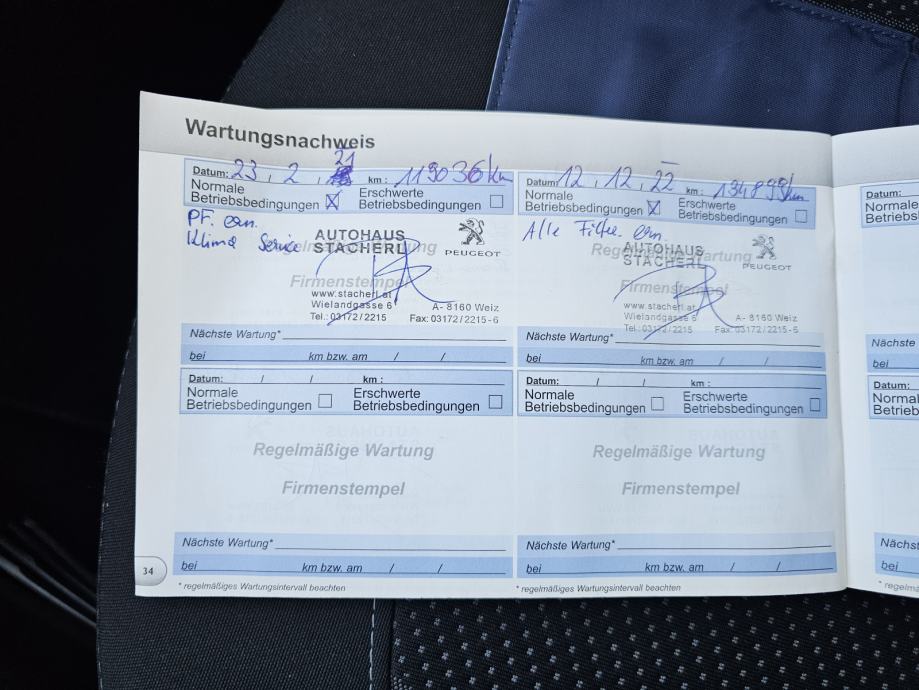 Wartungsnachweis
Datum: 23 , 2 , 21 km : 119036 km
Normale Betriebsbedingungen Erschwerte Betriebsbedingungen
PF. ern.
Klima Service
AUTOHAUS
STACHERL
PEUGEOT
Firmenstempel
www.stacherl.at
Wielandgasse 6 A- 8160 Weiz
Tel.: 03172/2215 Fax: 03172/2215-6
Nächste Wartung*
bei km bzw. am / /
Datum: 12 , 12 , 22 km : 134899 km
Normale Betriebsbedingungen Erschwerte Betriebsbedingungen
Alle Filter ern.
AUTOHAUS
STACHERL
PEUGEOT
Firmenstempel
www.stacherl.at
Wielandgasse 6 A- 8160 Weiz
Tel.: 03172/2215 Fax: 03172/2215-6
Nächste Wartung*
bei km bzw. am / /
Datum: / / km :
Normale Betriebsbedingungen Erschwerte Betriebsbedingungen
Regelmäßige Wartung
Firmenstempel
Nächste Wartung*
bei km bzw. am / /
* regelmäßiges Wartungsintervall beachten
Datum: / / km :
Normale Betriebsbedingungen Erschwerte Betriebsbedingungen
Regelmäßige Wartung
Firmenstempel
Nächste Wartung*
bei km bzw. am / /
* regelmäßiges Wartungsintervall beachten
34
Datum:
Nächste
bei
Datum:
Nächste
bei